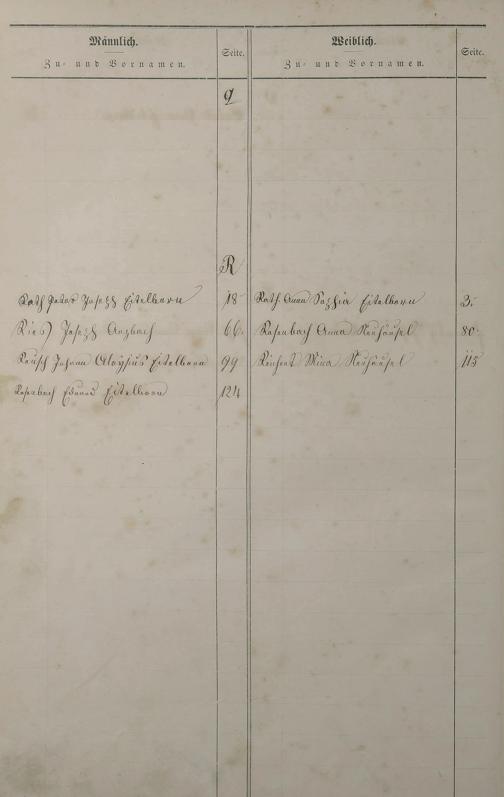 Männlich.
Zu- und Vornamen.
Seite.
Weiblich.
Zu- und Vornamen.
Seite.
Q
R
Rath Peter Joseph Eitelborn 18
Rath Anna Sophia Eitelborn 3.
Ries Joseph Arzbach 66.
Rosenbach Anna Neuhäusel 80
Reusch Johann Aloysius Eitelborn 99
Mina Neuhäusel 113
Rosenbach Eduard Eitelborn 124